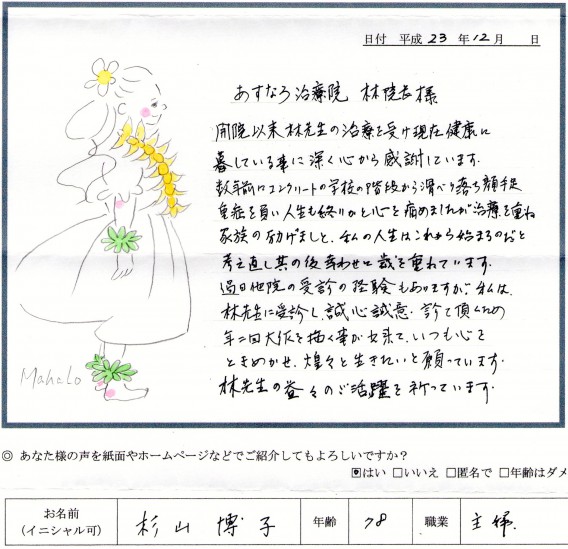 日付 平成 23 年 12 月 日
あすなろ治療院 林院長様
開院以来林先生の治療を受け現在健康に
暮している事に深く心から感謝しています。
数年前にコンクリートの学校の階段から滑べり落ち顔手足
重症を負い人生も終りかと心を痛めましたが治療を重ね
家族の励げましと、私の人生はこれから始まるのだと
考え直し其の後幸わせに歳を重ねています。
過日他院の受診の経験もありますが、私は、
林先生に受診し誠心誠意、診て頂くため
年二回大作を描く事が出来て、いつも心を
ときめかせ、煌々と生きたいと願っています。
林先生の益々のご活躍を祈っています。
Mahalo
◎ あなた様の声を紙面やホームページなどでご紹介してもよろしいですか?
■はい □いいえ □匿名で □年齢はダメ
お名前 (イニシャル可) 杉山博子 年齢 78 職業 主婦.